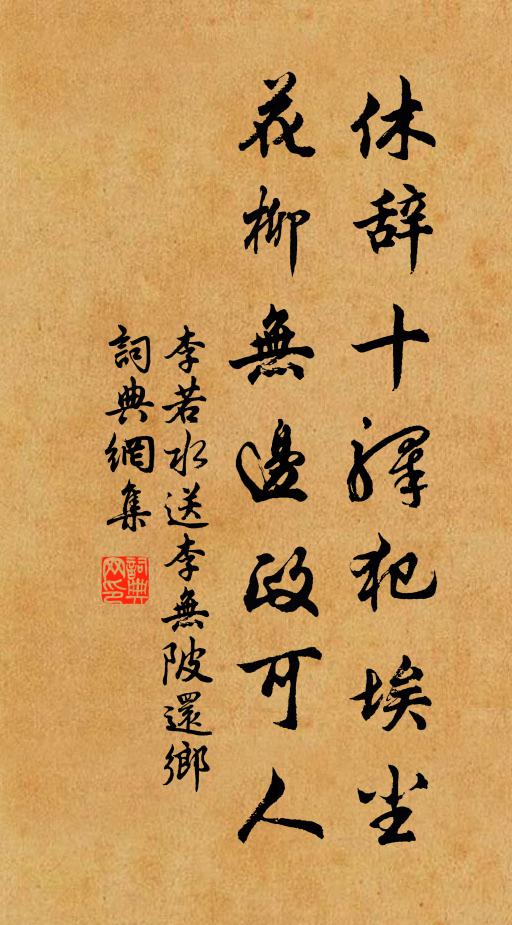 休辞十驛犯埃尘
花柳無邊政可人
李若水送李無陂還鄉
詞典網集
詞典网印